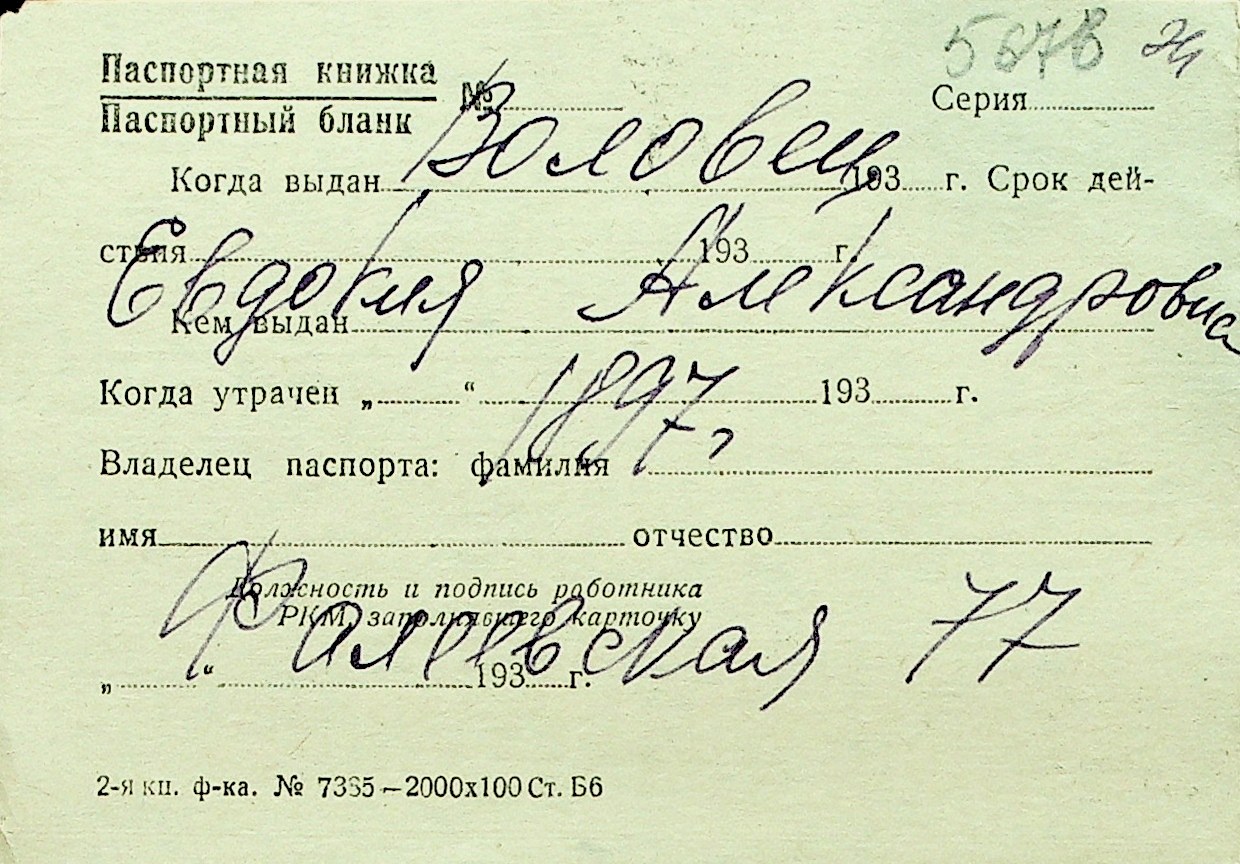 5678 Ж
Паспортная книжка
Паспортный бланк № Серия
Воловец
Когда выдан 193 г. Срок дей-
ствия 193 г.
Евдокия Александровна
Кем выдан
Когда утрачен „ “ 193 г.
1897г
Владелец паспорта: фамилия
имя отчество
Должность и подпись работника
РКМ, заполнявшего карточку
Фалеевская 77
„ “ 193 г.
2-я кн. ф-ка. № 7335—2000х100 Ст. Б6